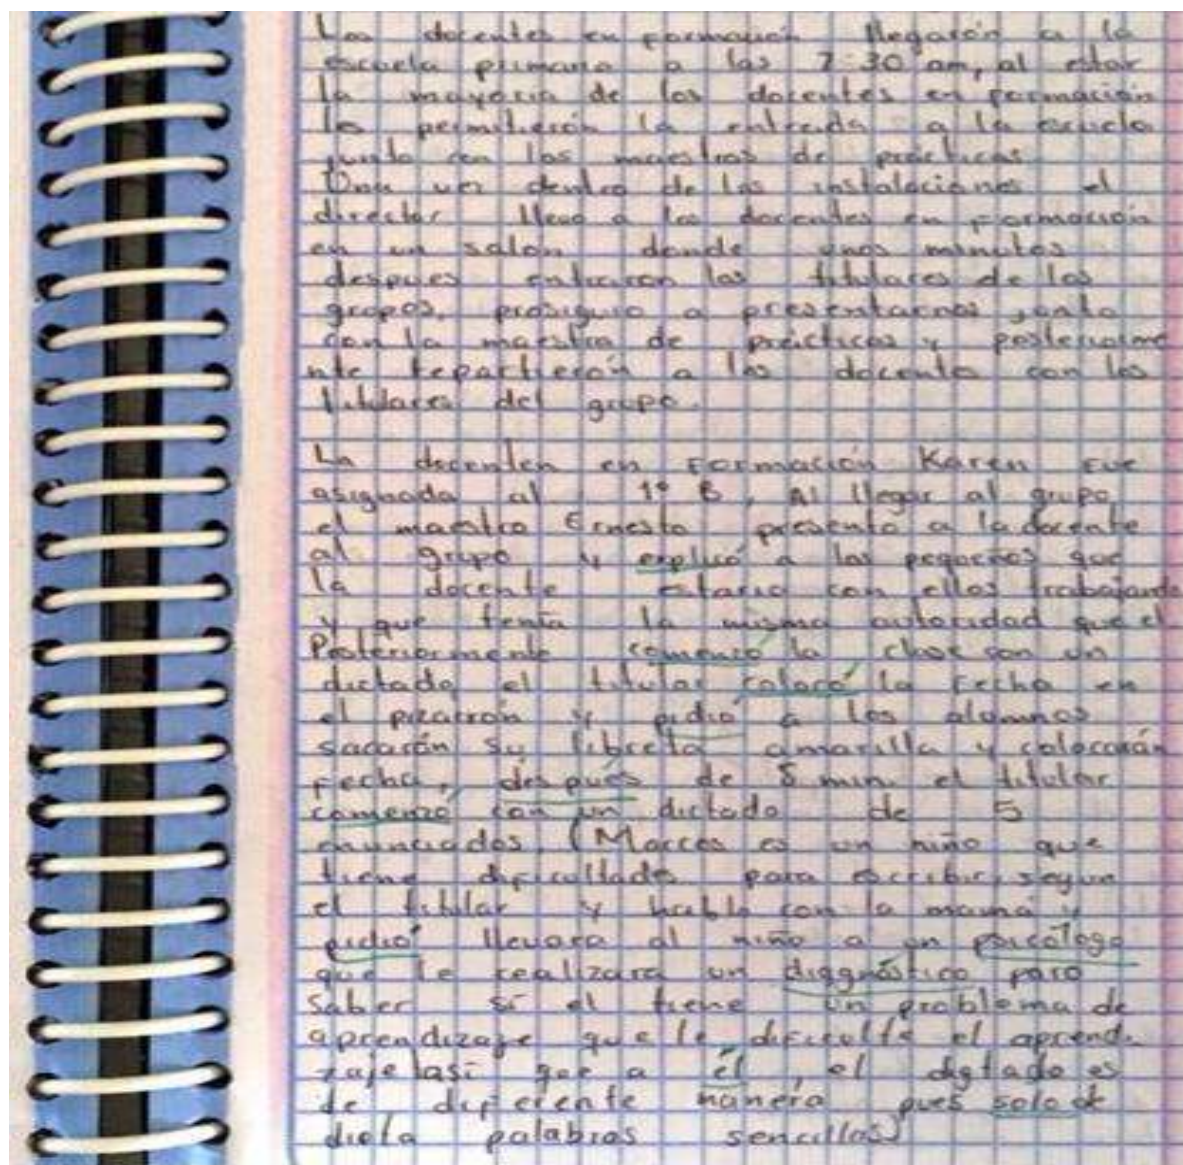 Los docentes en formación llegarón a la
escuela primaria a las 7:30 am, al estar
la mayoria de los docentes en formación
les permitierón la entrada a la escuela
junto con los maestros de prácticas.
Una vez dentro de las instalaciones el
director llevo a los docentes en formación
en un salon donde unos minutos
despues entraron las titulares de los
grupos, prosiguio a presentarnos junto
con la maestra de prácticas y posteriorme
nte repartierón a los docentes con los
titulares del grupo.
La docenten en Formación Karen fue
asignada al 1° B, Al llegar al grupo
el maestro Ernesto presento a la docente
al grupo y explicó a los pequeños que
la docente estaria con ellos trabajando
y que tenía la misma autoridad que el.
Posteriormente comenzó la clase con un
dictado el titular colocó la fecha en
el pizarrón y pidió a los alumnos
sacarán su libreta amarilla y colocarán
fecha, después de 5 min. el titular
comenzó con un dictado de 5
enunciados. (Marcos es un niño que
tiene dificultades para escribir, segun
el titular y hablo con la mamá y
pidió llevara al niño a un psicólogo
que le realizara un diagnóstico para
saber si el tiene un problema de
aprendizaje que le dificulte el aprendi
zaje así que a él, el digtado es
de diferente manera pues solo de
dicta palabras sencillas)